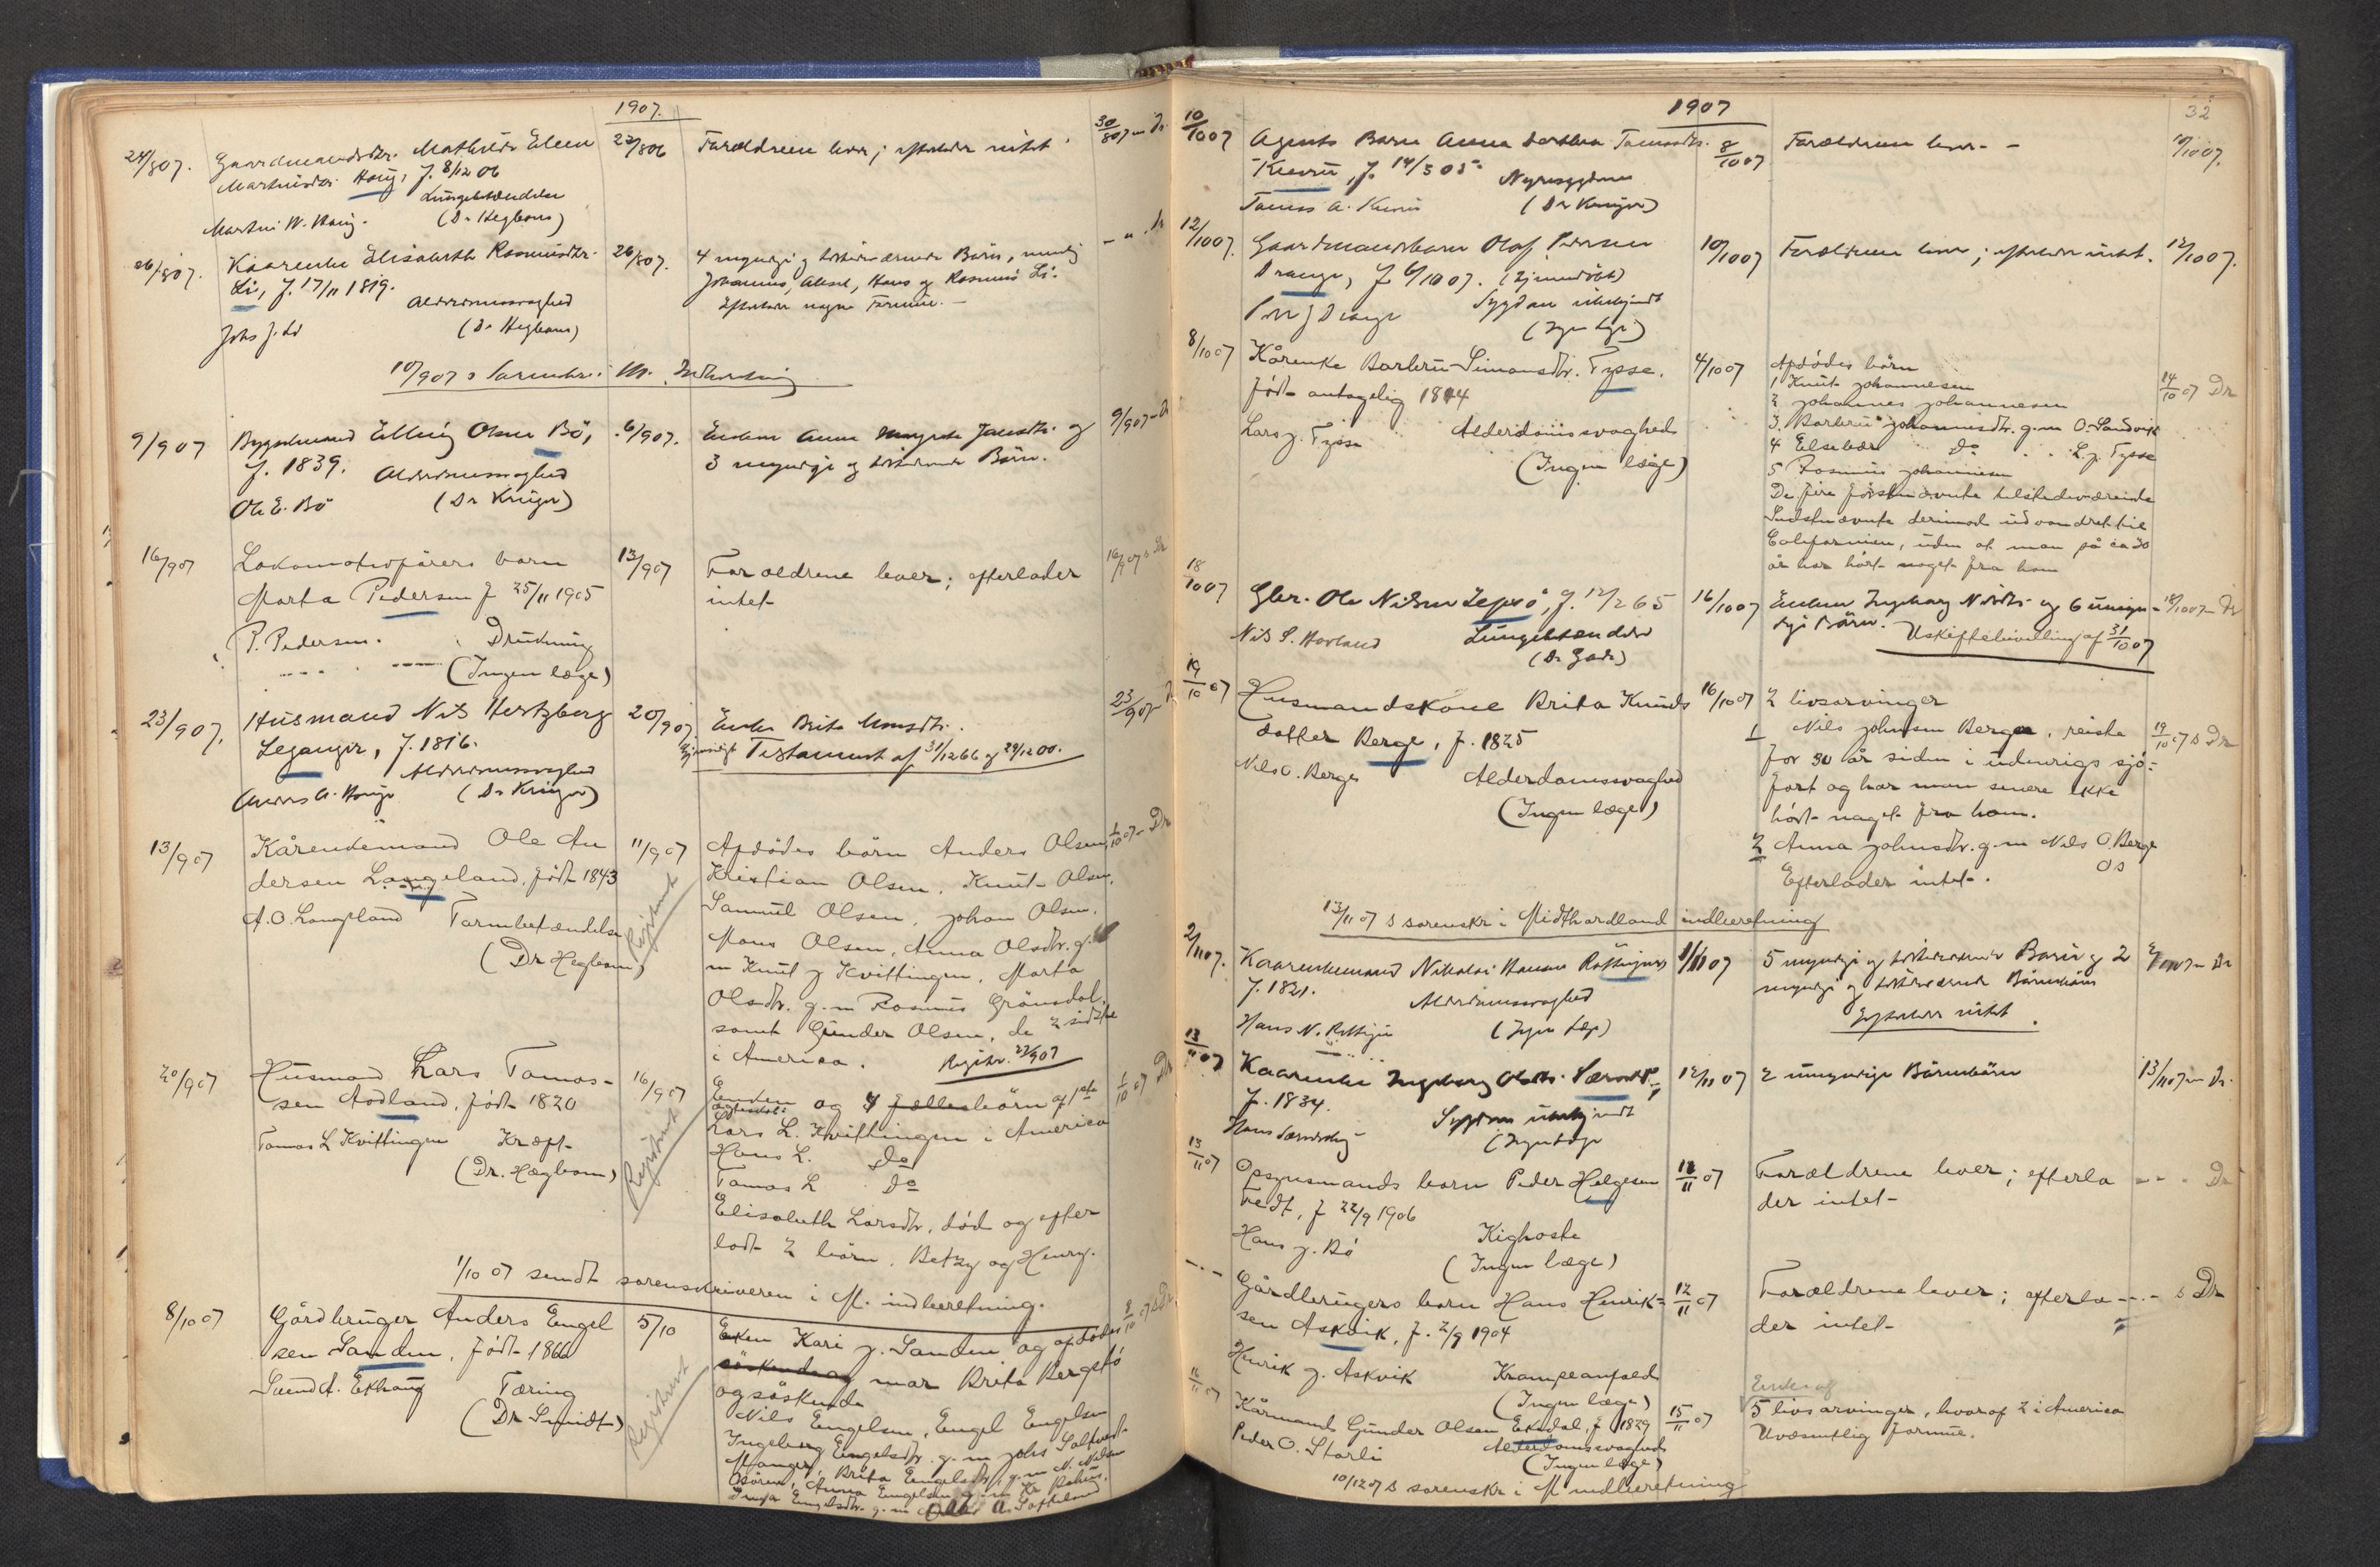 1907.
24/807. Gaardmandsdtr. Mathilde Elene 23/806 Foraldrene lever; efterlader intet. 30/807 Dr
Martinsdtr. Haug, f. 8/12 06
Lungebetændelse
Martin W. Haug. (Dr Hegbom)
26/807. Kaarenke Elisabeth Rasmusdtr. 26/807. 4 myndige og tilstedeværende Børn, nemlig
Li, f. 17/11 1819. Johannes, Aksel, Hans og Rasmus Li.
Alderdomssvaghed Efterlader nogen Formue.
Johs J. Li (Dr Hegbom)
10/907 s Sorenskr. i M. Indberetning
9/907 Elling Olsen Bö, 6/907. Enken Anna Jansdtr. og 9/907
f. 1839. Alderdomssvaghed 3 myndige og tilstedeværende Børn.
Ole E. Bö (Dr Krüger)
16/907 Lokomotivførers barn 13/907 Foraldrene lever; efterlader 16/907 s Dr
Marta Pedersen f 25/11 1905 intet
P. Pedersen. Drukning
(Ingen læge)
23/907. Husmand Nils Hertzberg 20/907 Enke Brita Monsdtr. 23/907
Leganger, f. 1816. Gjensidigt Testament af 31/12 66 og 24/12 00.
Alderdomssvaghed
Anders A. Hauge (Dr Krüger)
13/907 Kårenkemand Ole An 11/907 Afdødes børn Anders Olsen, 1/10 07 Dr
dersen Langeland, født 1843 Kristian Olsen, Knut Olsen,
A. O. Langeland Tarmbetændelse Registrert Samuel Olsen, Johan Olsen,
(Dr Hegbom) Mons Olsen, Anna Olsdtr. g.
m Knut J Kvittingen, Marta
Olsdtr. g. m Rasmus Grönsdal,
samt Gunder Olsen, de 2 sidste
i America. Registr. 27/907
20/907 Husmand Lars Tomas- 16/907 Enken og 4 fællesbörn af 1ste 1/10 07 Dr
sen Aadland, født 1820 Lars L. Kvittingen i America
Tomas L Kvittingen Kræft Registrert Hans L. Do
(Dr. Hægbom) Tomas L Do
Elisabeth Larsdtr, død og efter
lodt 2 børn, Betzy og Henry.
1/10 07 sendt sorenskriveren i M. indberetning.
8/10 07 Gårdbruger Anders Engel 5/10 Enken Kari J. Sanden og afdødes 8/10 07 s Dr
sen Sanden, født 1866 söskende og mor Brita Bergstö
Svend A. Ekhaug Tæring og söskende
(Dr Smidt) Registrert Nils Engelsen, Engel Engelsen
Ingeborg Engelsdtr. g. m Johs Saltvedt
Manger, Brita Engelsdtr, g. m N. Nilsen
Osören, Anna Engelsen g. m
Engelsdtr. g. m A. Softeland
1907 32
10/1007 Agents Barn Anna Dorthea Tomasdtr. 8/10 07 Forældrene lever 10/1007.
f. 14/5 05. Nyresygdom
Tomas A. (Dr Krüger)
12/1007. Gaardmandsbarn Olaf Persen 10/1007 Forældrene lever; efterlader intet. 12/1007.
Drange, f 6/1007. (Hjemmedøbt)
Per J Drange Sygdom ubekjendt
(Ingen læge)
8/10 07 Kårenke Barbru Simonsdtr. Tysse, 4/10 07 Afdødes börn 14/10 07 Dr
født antagelig 1814 1 Knut Johannesen
2 Johannes Johannesen
Lars J. Tysse Alderdomssvaghed 3, Barbru Johannesdtr. g. m O. Sandvik
(Ingen læge) 4 Elsebær Do . . L. J. Tysse
5 Rasmus Johannesen
De fire förstnævnte tilstedeværende
Sidstnævnte derimod udvandret til
Californien, uden at man på ca 30
år har hört noget fra ham
18/1007 Gbr. Ole Nilsen Lepsö, f. 12/2 65 16/1007 Enken Ingeborg Nilsdtr. og 6 umyn- 18/1007 Dr
dige Børn. Uskiftebevilling af 31/10 07
Nils S. Hovland Lungebetændelse
(Dr Gade)
19/10 07 Husmandskone Brita Knuds 16/10 07 2 livsarvinger
datter Berge, f. 1825 1 Nils Johnsen Berge, reiste 19/10 07 s Dr
Nils O. Berge Alderdomssvaghed for 30 år siden i udenrigs sjö-
(Ingen læge) fart og har man senere ikke
hört noget fra ham.
2 Anna Johnsdtr. g. m Nils O. Berge
Efterlader intet. Os
13/11 07 s sorenskr i Midthordland indberetning
2/1107. Kaarenkemand Nikolai Hansen Röttingen 1/11 07 5 myndige og tilstedeværende Børn og 2 Dr
f. 1821. Alderdomssvaghed myndige og tilstedeværende Børnebørn
Hans N. Röttingen (Ingen Læge) Efterlader intet
13/11 07 Kaarenke Ingeborg Olsdtr. 12/11 07 2 umyndige Børnebørn 13/1107 Dr.
f. 1834. Sygdom ubekjendt
(Ingen Læge
13/11 07 Opsynsmands barn Peder Helgesen 12/11 07 Foraldrene lever; efterla Dr
Tvedt, f 22/9 1906 der intet
Hans J. Bö Kighoste
(Ingen læge)
Gårdbrugers barn Hans Henrik- 12/11 07 Foraldrene lever; efterla s Dr
sen Askvik, f. 2/9 1904 der intet
Henrik J. Askvik Krampeanfald
(Ingen læge)
16/11 07 Kårmand Gunder Olsen Eksdal, f 1829 15/11 07 Enke og 5 livsarvinger, hvoraf 2 i America
Peder O. Storli Alderdomssvaghed Uvæsentlig formue.
(Ingen læge)
10/12 07 s sorenskr i M indberetning